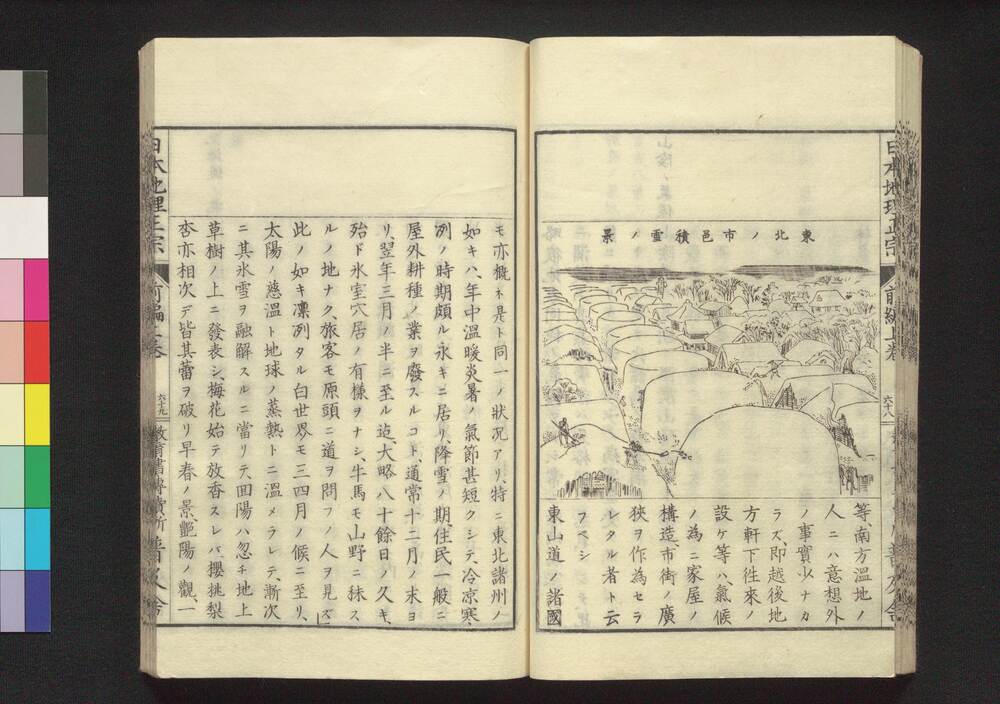 日本地理正宗
前編上巻
六十八
東北ノ市邑積雪ノ景
等、南方溫地ノ
人ニハ意想外
ノ事實少ナカ
ラズ、即越後地
方軒下往來ノ
設ケ等ハ、氣候
ノ為ニ家屋ノ
構造、市街ノ廣
狹ヲ作為セラ
レタル者ト云
フベシ
東山道ノ諸國
モ亦概子是ト同一ノ狀況アリ、特ニ東北諸州ノ
如キハ、年中溫暖炎暑ノ氣節甚短クシテ、冷凉寒
冽ノ時期頗ル永キニ居リ、降雪ノ期、住民一般ニ
屋外耕種ノ業ヲ廢スルコト、通常十二月ノ末ヨ
リ、翌年三月ノ半ニ至ル迄、大略八十餘日ノ久キ、
殆ド氷室穴居ノ有樣ヲナシ、牛馬モ山野ニ秣ス
ルノ地ナク、旅客モ原頭ニ道ヲ問フノ人ヲ見ズ」
此ノ如キ凛冽タル白世界モ三四月ノ候ニ至リ、
太陽ノ慈溫ト地球ノ蒸熱トニ溫メラレテ、漸次
ニ其氷雪ヲ融解スルニ當リテ、回陽ハ忽チ地上
草樹ノ上ニ發表シ、梅花始テ放香スレバ、櫻桃梨
杏亦相次デ皆其蕾ヲ破リ早春ノ景、艷陽ノ觀一
日本地理正宗
前編上巻
六十九
教育書專賣所 普及舍